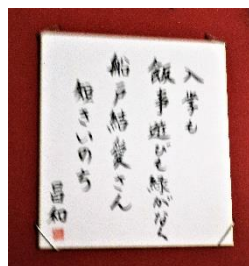 入学も
飯事遊びも縁がなく
船戸結愛さん
短きいのち
昌和